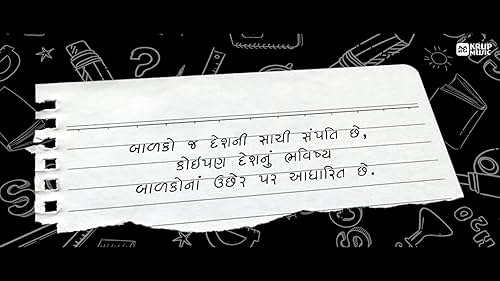 KRUP
MUSIC
બાળકો જ દેશની સાચી સંપતિ છે,
કોઈપણ દેશનું ભવિષ્ય
બાળકોનાં ઉછેર પર આધારિત છે.
H2O